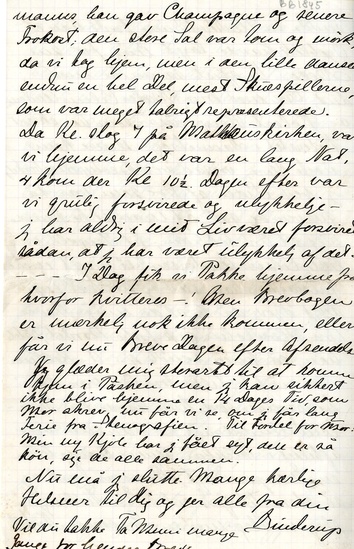 BB1845
manns, han gav Champagne og senere
Frokost; den store Sal var tom og mørk
da vi tog hjem, men i den lille dansede
endnu en hel Del, mest Skuespillerne,
som var meget talrigt repræsenterede.
Da Kl. slog 7 på Matthæuskirken, var
vi hjemme, det var en lang Nat,
kom der Kl 10½. Dagen efter var
vi grulig forsvirede og ulykkelige –
jeg har aldrig i mit Liv været forsviret
sådan, at jeg har været ulykkelig af det. –
– – – – I Dag fik vi Pakke hjemme fra
hvorfor kvitteres –! Men Brevbogen
er mærkelig nok ikke kommen, eller
får vi nu Breve Dagen efter Afsendelsen
Jeg glæder mig storartet til at komme
hjem i Påsken, men jeg kan sikkert
ikke blive hjemme en 14 Dages Tid som
Mor skrev, nu får vi se, om jeg får lang
Ferie fra Stenografien.
Min ny Kjole har jeg fået syet, den er så
kön, sige de alle sammen.
Nu må jeg slutte Mange kærlige
Hilsner til dig og jer alle fra din
Dinderup
Vil du takke Ta Mimi mange
Gange for hendes Brev